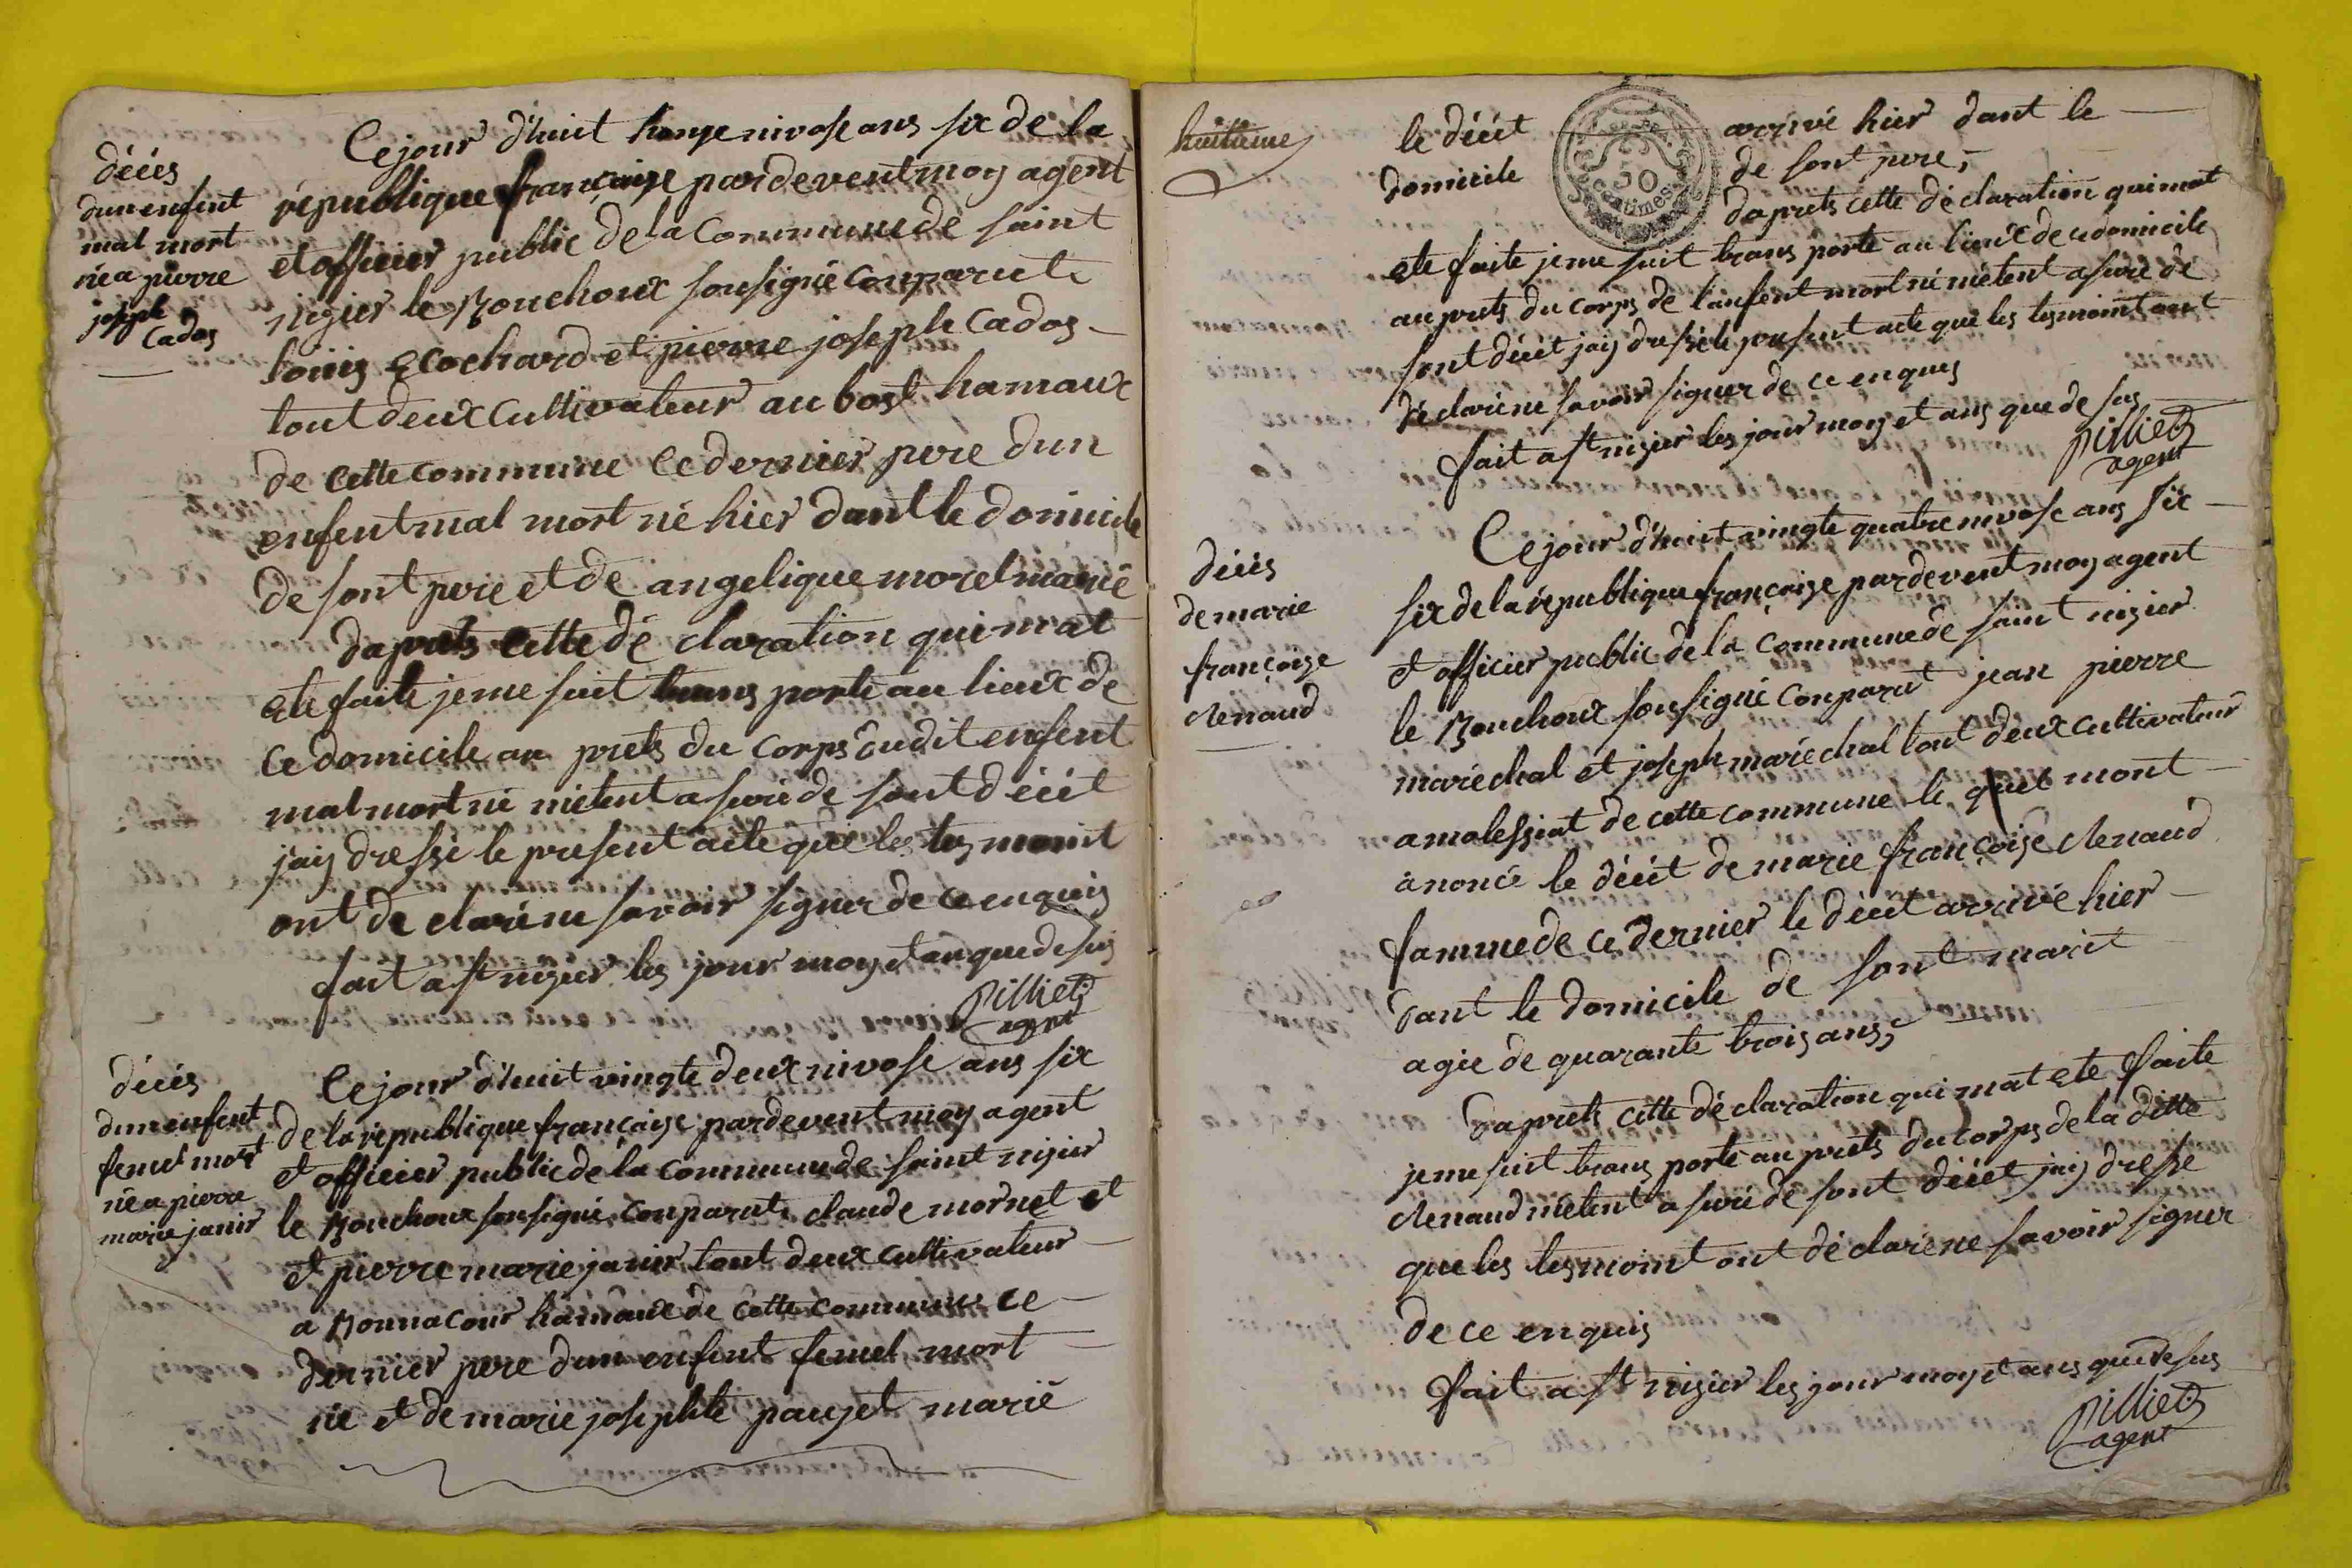 décès
dun enfent
mal mort
né a pierre
joseph
Cados
Ce jour d'huit honze nivose ans six de la
république françaize pardevent moy agent
et officier public de la Commune de saint
nizier le Bouchoux sousigné comparut
louis Ecochard et pierre joseph Cados
tout deux Cultivateur au bost hamaux
de cette commune ce dernier pere dun
enfent mal mort né hier dant le domicile
de sont pere et de angelique morel marié
daprets cette dé claration qui mat
ete faite je me suit trans porté au lieux de
ce domicile au prets du corps dudit enfent
mal mort né mètent asuré de sont décét
jaiy dressé le present acte que les tesmoint
ont de claré ne savoir signer de ce enquis
fait a st nizier les jour moy et an que desus
pilliet
agent
décés
dun enfent
femel mort
né a pierre
marie janir
Ce jour d'huit vingte deux nivose ans six
de la république françaize pardevent moy agent
et officier public de la Commune de saint nizier
le Bouchoux sousigné comparut claude mornet et
et pierre marie janir tout deux cultivateur
a Bonnacour hamaux de cette commune ce
dernier pere dun enfent femel mort
né et de marie josephte pauget marié
huitieme
50 centimes
le décét arrivé hier dant le
domicile de sont pere,
daprets cette dé claration qui mat
ete faite je me suit trans porté au lieux de ce domicile
au prets du corps de lanfent mort né mètent asuré de
sont décét jaiy dressé le present acte que les tesmoint ont
dé claré ne savoir signer de ce enques
fait a st nizier les jour moy et ans que de sus
pilliet
agent
décés
de marie
françoize
clenaud
Ce jour d'huit vingte quatre nivose ans six
six de la république françaize pardevent moy agent
et officier public de la commune de saint nizier
le Bouchoux sousigné comparut jean pierre
maréchal et joseph maréchal tout deux cultivateur
a malessiat de cette commune le quel mont
anoncé le décét de marie françoize clenaud
famme de ce dernier le décét arrivé hier
dant le domicile de sont marit
agée de quarante trois ans,
daprets cette dé claration qui mat ete faite
je me suit trans porté au prets du corps de la ditte
clenaud mètent asuré de sont décét jaiy dresse
que les tesmoint ont dé claré ne savoir signer
de ce enquis
fait a st nizier les jour moy et ans que de sus
pilliet
agent